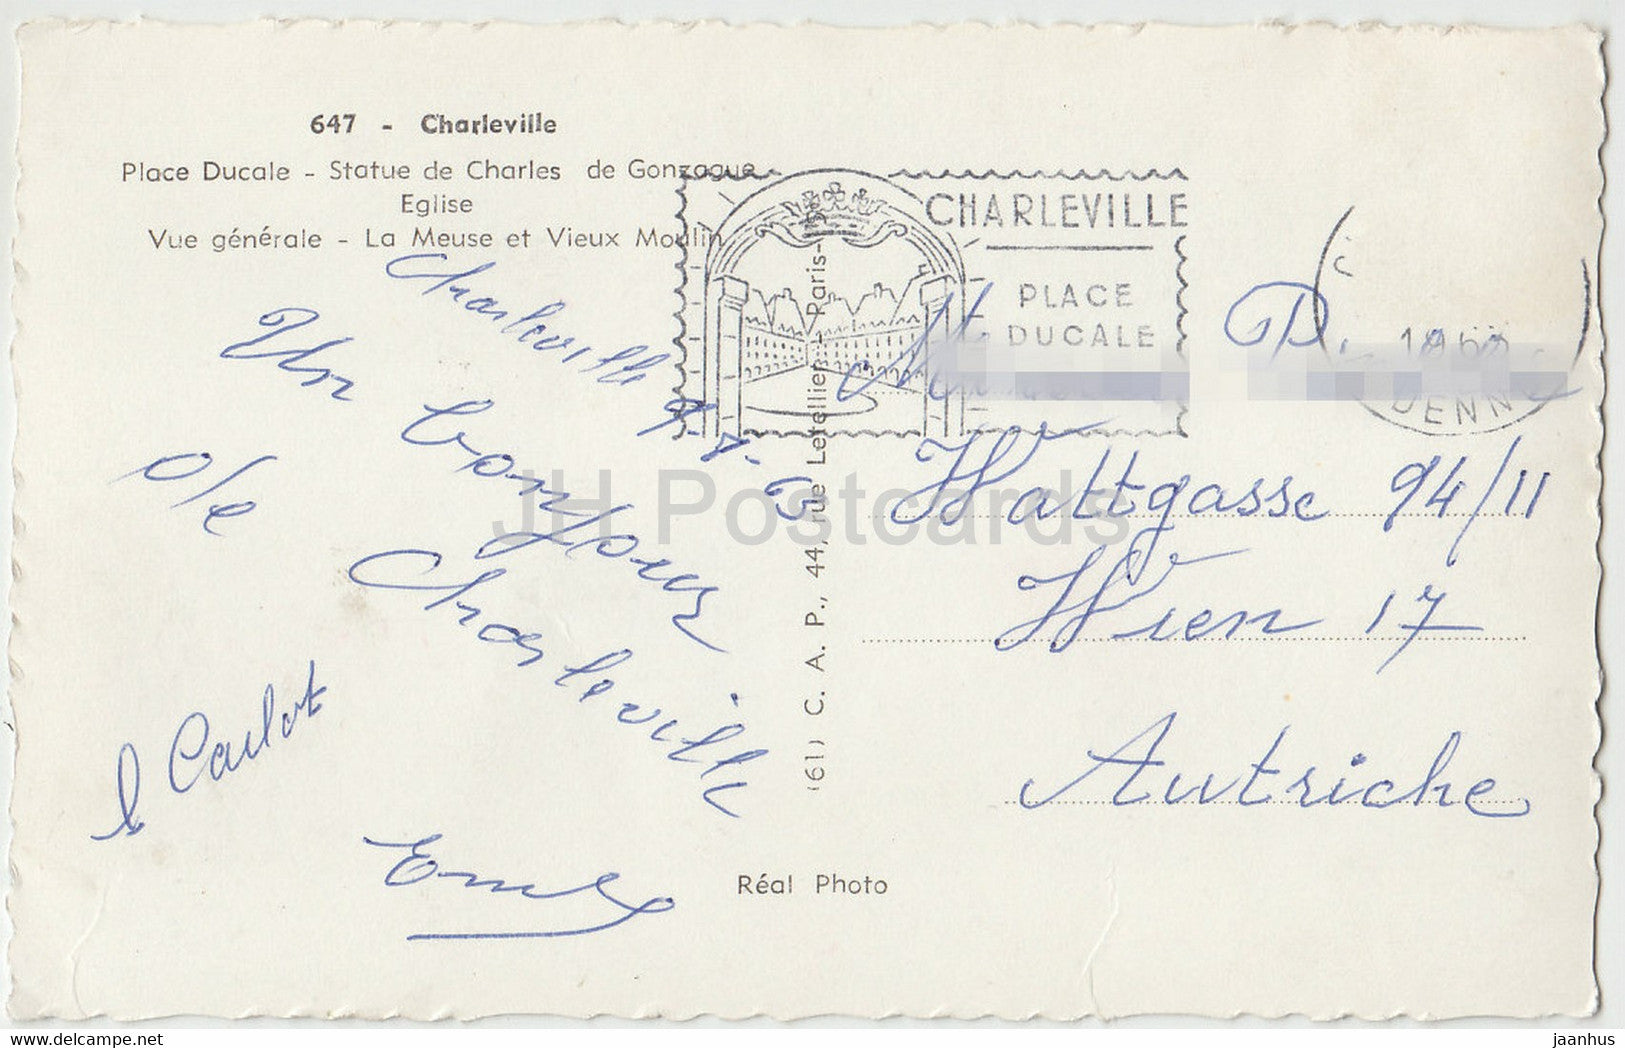 647 - Charleville
Place Ducale - Statue de Charles de Gonzague
Eglise
Vue générale - La Meuse et Vieux Moulin
Charleville
7-7-63
Un bonjour
de
Charleville
Carlot
CHARLEVILLE
PLACE
DUCALE
1963
DENN
(61) C. A. P., 44, rue Letellier - Paris-
Wattgasse 94/11
Wien 17
Autriche
Réal Photo
JH Postcards
delcampe.net
jaanhus